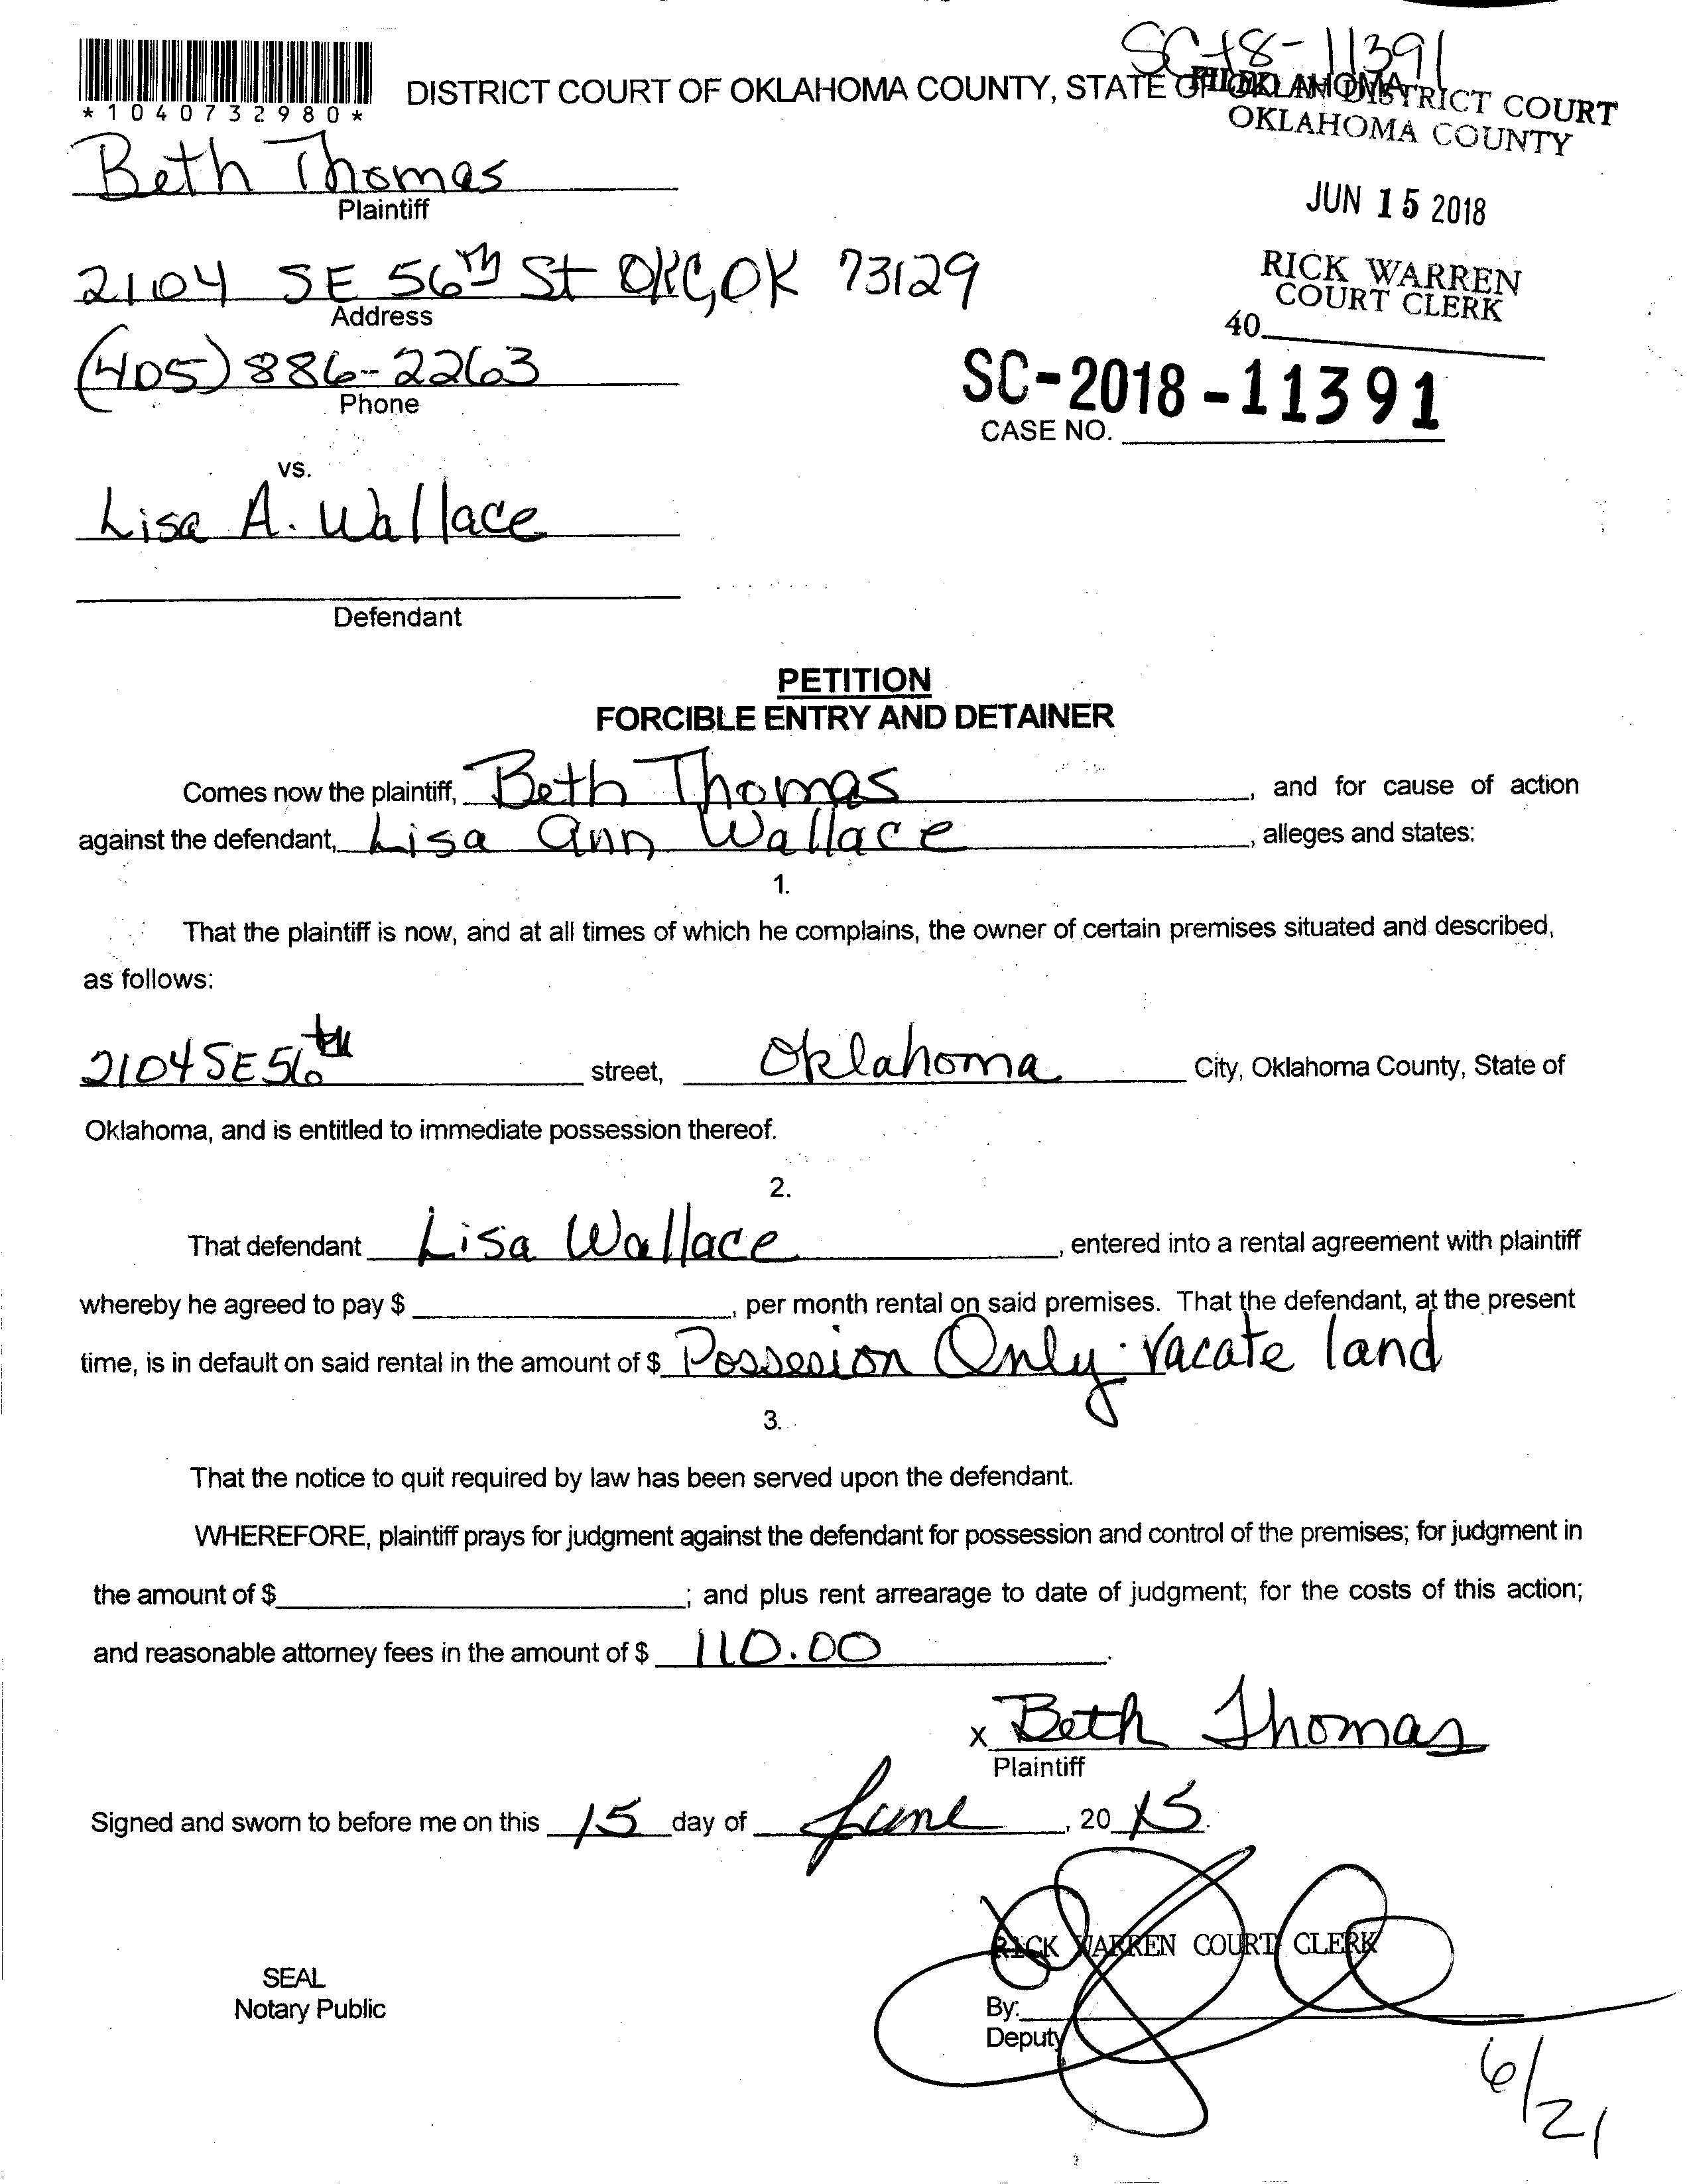 SC-18-11391
*1040732980*
DISTRICT COURT OF OKLAHOMA COUNTY, STATE OF OKLAHOMA
FILED IN DISTRICT COURT
OKLAHOMA COUNTY
JUN 15 2018
RICK WARREN
COURT CLERK
40
Beth Thomas
Plaintiff
2104 SE 56th St OKC, OK 73129
Address
(405) 886-2263
Phone
SC-2018-11391
CASE NO.
vs.
Lisa A. Wallace
Defendant
PETITION
FORCIBLE ENTRY AND DETAINER
Comes now the plaintiff, Beth Thomas, and for cause of action
against the defendant, Lisa Ann Wallace, alleges and states:
1.
That the plaintiff is now, and at all times of which he complains, the owner of certain premises situated and described,
as follows:
2104 SE 56th street, Oklahoma City, Oklahoma County, State of
Oklahoma, and is entitled to immediate possession thereof.
2.
That defendant Lisa Wallace, entered into a rental agreement with plaintiff
whereby he agreed to pay $ , per month rental on said premises. That the defendant, at the present
time, is in default on said rental in the amount of $ Possesion Only. Vacate land
3.
That the notice to quit required by law has been served upon the defendant.
WHEREFORE, plaintiff prays for judgment against the defendant for possession and control of the premises; for judgment in
the amount of $ ; and plus rent arrearage to date of judgment; for the costs of this action;
and reasonable attorney fees in the amount of $ 110.00.
x Beth Thomas
Plaintiff
Signed and sworn to before me on this 15 day of June, 20 15.
RICK WARREN COURT CLERK
SEAL
Notary Public
By:
Deputy
6/21